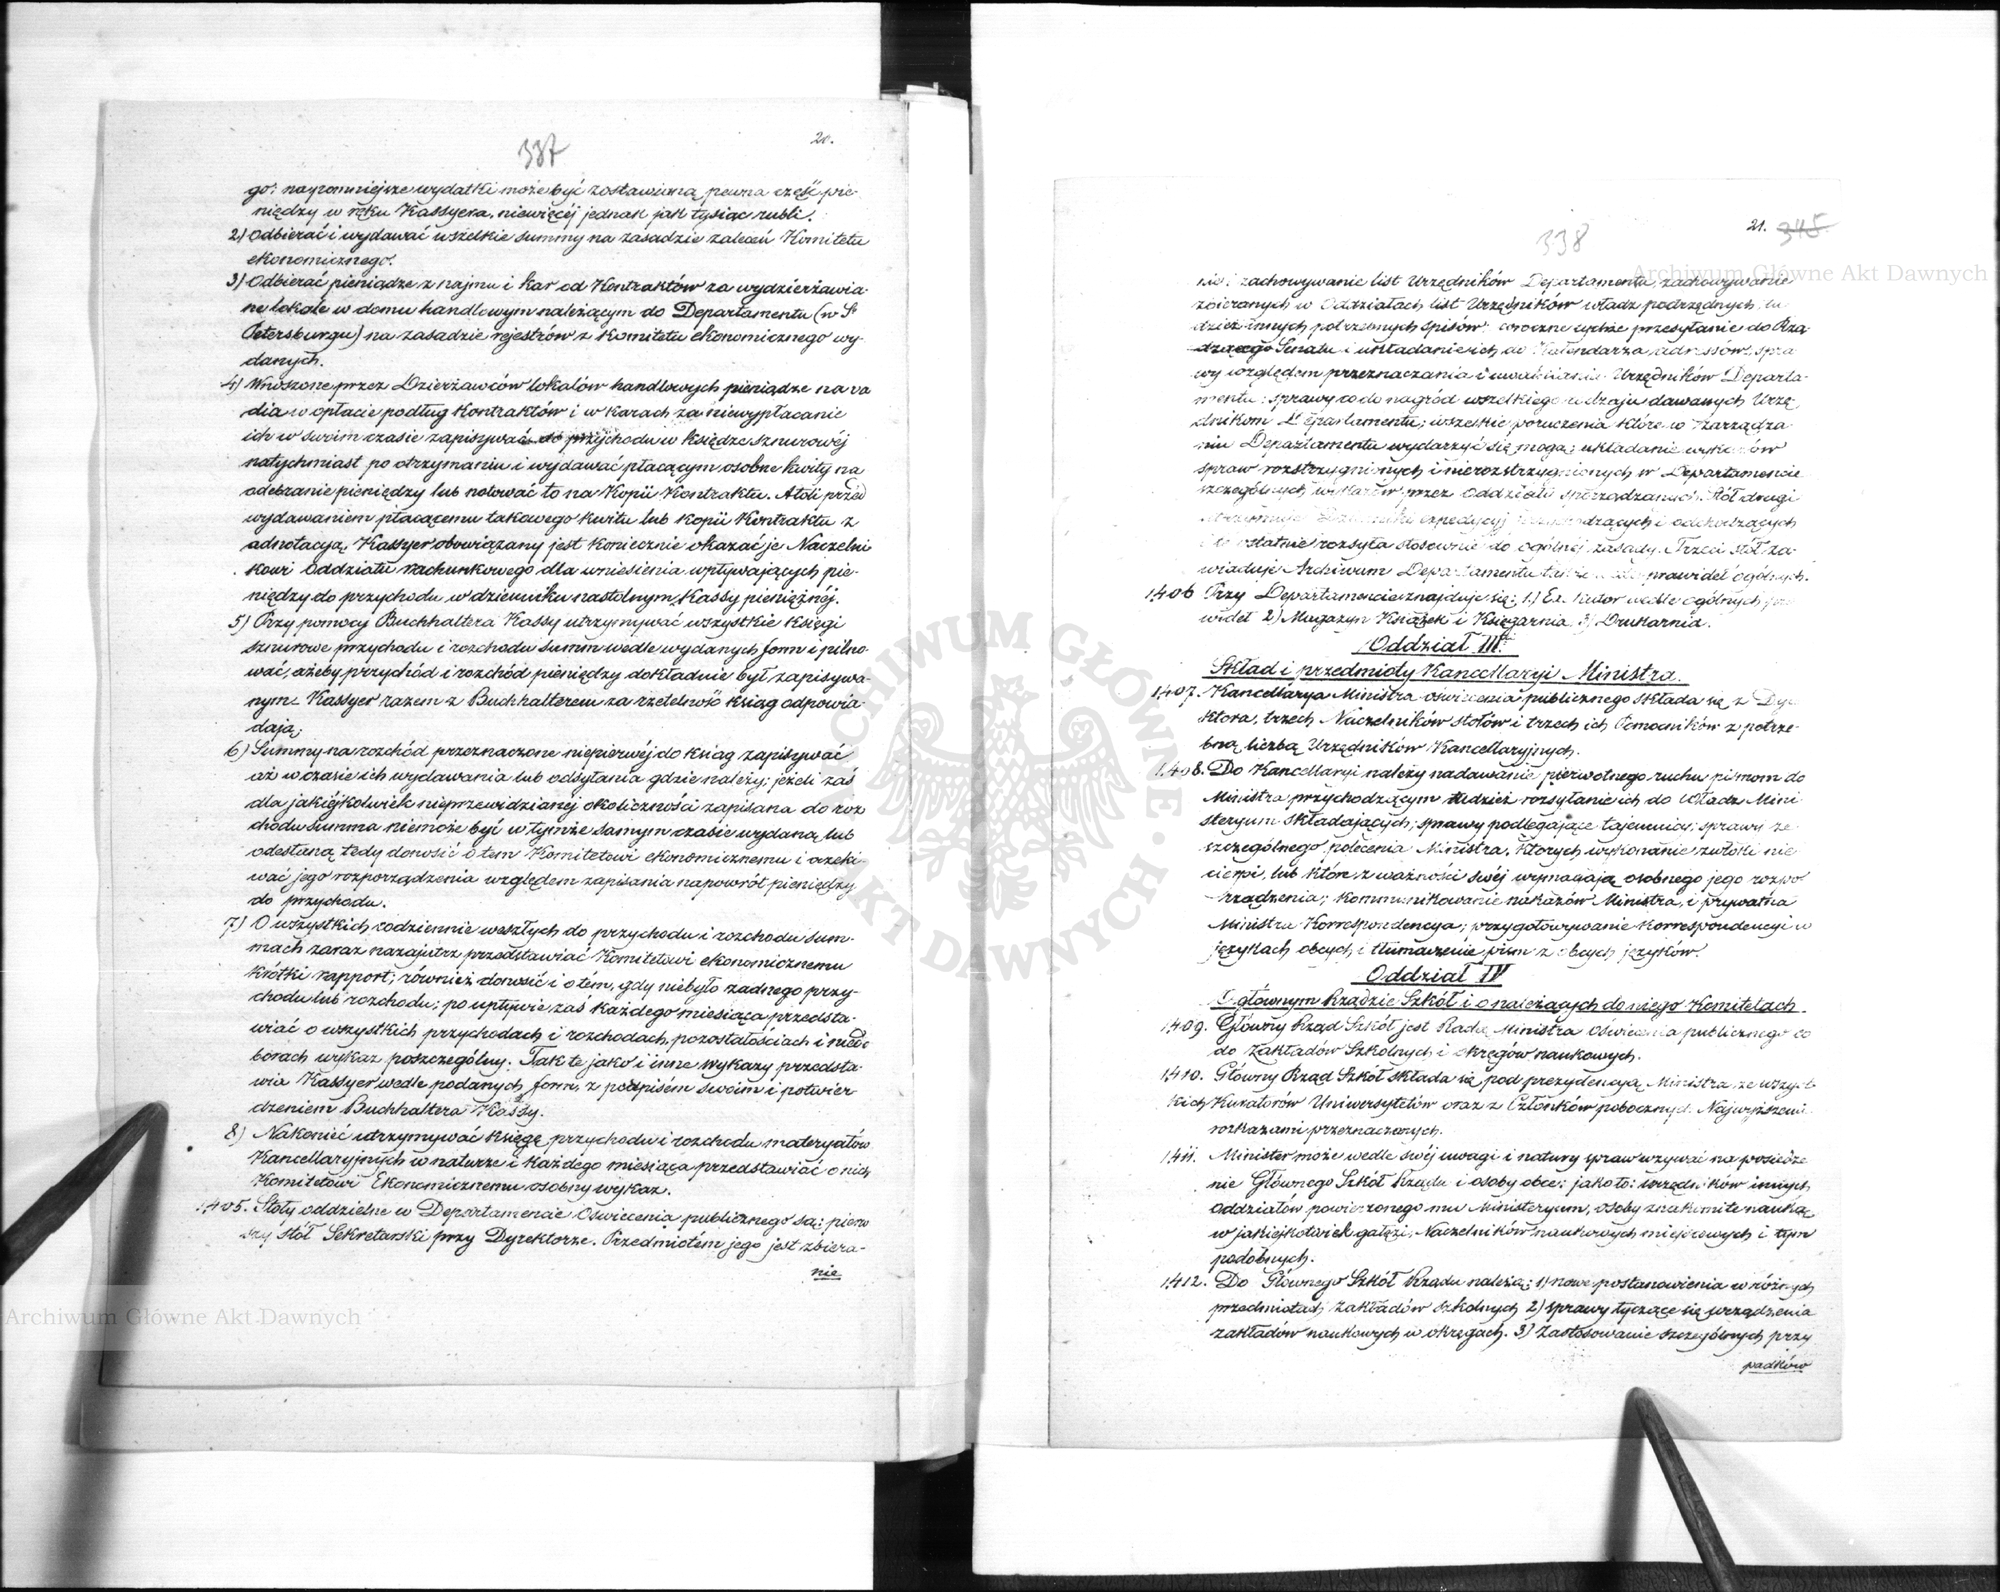 337
20.
go; na pomniejsze wydatki może być zostawioną pewna część pie-
niędzy w ręku Kassyera, niewięcéj jednak jak tysiąc rubli.
2) Odbierać i wydawać wszelkie summy na zasadzie zaleceń Komitetu
ekonomicznego.
3) Odbierać pieniądze z najmu i kar od Kontraktów za wydzierżawia-
ne lokale w domu handlowym należącym do Departamentu (w St
Petersburgu) na zasadzie rejestrów z Komitetu ekonomicznego wy-
danych.
4) Wnoszone przez Dzierżawców lokalów handlowych pieniądze na va
dia w opłacie podług Kontraktów i w Karach za niewypłacanie
ich w swoim czasie zapisywać do przychodu w księdze sznurowéj
natychmiast po otrzymaniu i wydawać płacącym osobne kwity na
odebranie pieniędzy lub notować to na Kopii Kontraktu. Atoli przed
wydawaniem płacącemu takowego kwitu lub kopii Kontraktu z
adnotacyą, Kassyer obowiązany jest koniecznie okazać je Naczelni
kowi Oddziału rachunkowego dla wniesienia wpływających pie-
niędzy do przychodu w dzienniku nastolnym Kassy pieniężnéj.
5) Przy pomocy Buchhaltera Kassy utrzymywać wszystkie księgi
sznurowe przychodu i rozchodu summ wedle wydanych form i pilno-
wać, ażeby przychód i rozchód pieniędzy dokładnie był zapisywa-
nym. Kassyer razem z Buchhalterem za rzetelność ksiąg odpowia-
dają;
6) Summy na rozchód przeznaczone niepierwéj do ksiąg zapisywać
aż w czasie ich wydawania lub odsyłania gdzie należy; jeżeli zaś
dla jakiéjkolwiek nieprzewidzianéj okoliczności zapisana do roz
chodu summa niemoże być w tymże samym czasie wydaną lub
odesłaną, tedy donosić o tem Komitetowi ekonomicznemu i oczeki-
wać jego rozporządzenia względem zapisania napowrót pieniędzy
do przychodu.
7) O wszystkich codziennie weszłych do przychodu i rozchodu sum-
mach zaraz nazajutrz przedstawiać Komitetowi ekonomicznemu
krótki rapport; również donosić i o tém, gdy niebyło żadnego przy-
chodu lub rozchodu; po upływie zaś każdego miesiąca przedsta-
wiać o wszystkich przychodach i rozchodach, pozostałościach i niedo
borach wykaz poszczególny. Tak te jako i inne wykazy przedsta-
wia Kassyer wedle podanych form, z podpisém swoim i potwier-
dzeniem Buchhaltera Kassy.
8) Nakoniec utrzymywać księgę przychodu i rozchodu materyałów
Kancellaryjnych w naturze i każdego miesiąca przedstawiać o nich
Komitetowi Ekonomicznemu osobny wykaz.
1,405. Stoły oddzielne w Departamencie Oświecenia publicznego są: pierw
szy stół Sekretarski przy Dyrektorze. Przedmiotém jego jest zbiera-
nie
338
21. 345
nie i zachowywanie list Urzędników Departamentu, zachowywanie
zbieranych w Oddziałach list Urzędników władz podrzędnych, tu
dzież innych potrzebnych spisów; coroczne tychże przesyłanie do Rzą
dzącego Senatu i układanie ich do Kalendarza adressów; spra
wy względem przeznaczania i uwalniania Urzędników Departa-
mentu; sprawy co do nagród wszelkiego rodzaju dawanych Urzę-
dnikom Departamentu; wszelkie poruczenia które w zarządza-
niu Departamentu wydarzyć się mogą; układanie wykazów
spraw rozstrzygnionych i nierozstrzygnionych w Departamencie
szczególnych wykazów przez Oddziały sporządzanych. Stół drugi
utrzymuje Dzienniki expedycyj przychodzących i odchodzących
i te ostatnie rozsyła stosownie do ogólnéj zasady. Trzeci stół za-
wiaduje Archiwum Departamentu prawideł ogólnych.
1,406 Przy Departamencie znajduje się; 1.) Exekutor wedle ogólnych pra
wideł 2) Magazyn Książek i Księgarnia. 3) Drukarnia.
Oddział III.
Skład i przedmioty Kancellaryi Ministra.
1,407. Kancellarya Ministra oświecenia publicznego składa się z Dyre
ktora, trzech Naczelników stołów i trzech ich Pomocników z potrze-
bną liczbą Urzędników Kancellaryjnych.
1,408. Do Kancellaryi należy nadawanie pierwotnego ruchu pismom do
Ministra przychodzącym tudzież rozsyłanie ich do Władz Mini
steryum składających; sprawy podlegające tajemnicy; sprawy ze
szczególnego polecenia Ministra, których wykonanie zwłoki nie
cierpi, lub które z ważności swéj wymagają osobnego jego rozpo
rządzenia; kommunikowanie nakazów Ministra, i prywatna
Ministra Korrespondencya; przygotowywanie Korrespondencyi w
językach obcych i tłumaczenie pism z obcych języków.
Oddział IV
O głównym Rządzie Szkół i o należących do niego Komitetach.
1,409. Główny Rząd Szkół jest Radą Ministra Oświecenia publicznego co
do Zakładów Szkolnych i okręgów naukowych.
1,410. Główny Rząd Szkół składa się, pod prezydencyą Ministra ze wszyst
kich Kuratorów Uniwersytetów oraz z Członków pobocznych Najwyższemi
rozkazami przeznaczonych.
1,411. Minister może wedle swéj uwagi i natury spraw wzywać na posiedze
nie Głównego Szkół Rządu i osoby obce; jako to: urzędników innych
oddziałów powierzonego mu Ministeryum, osoby znakomite nauką
w jakiejkolwiek gałęzi, Naczelników naukowych miejscowych i tym
podobnych.
1,412. Do Głównego Szkół Rządu należą; 1) nowe postanowienia w różnych
przedmiotach Zakładów szkolnych 2) sprawy tyczące się urządzenia
zakładów naukowych w okręgach. 3) Zastosowanie szczególnych przy
padków
Archiwum Główne Akt Dawnych
Archiwum Główne Akt Dawnych
ARCHIWUM GŁÓWNE · AKT DAWNYCH ·